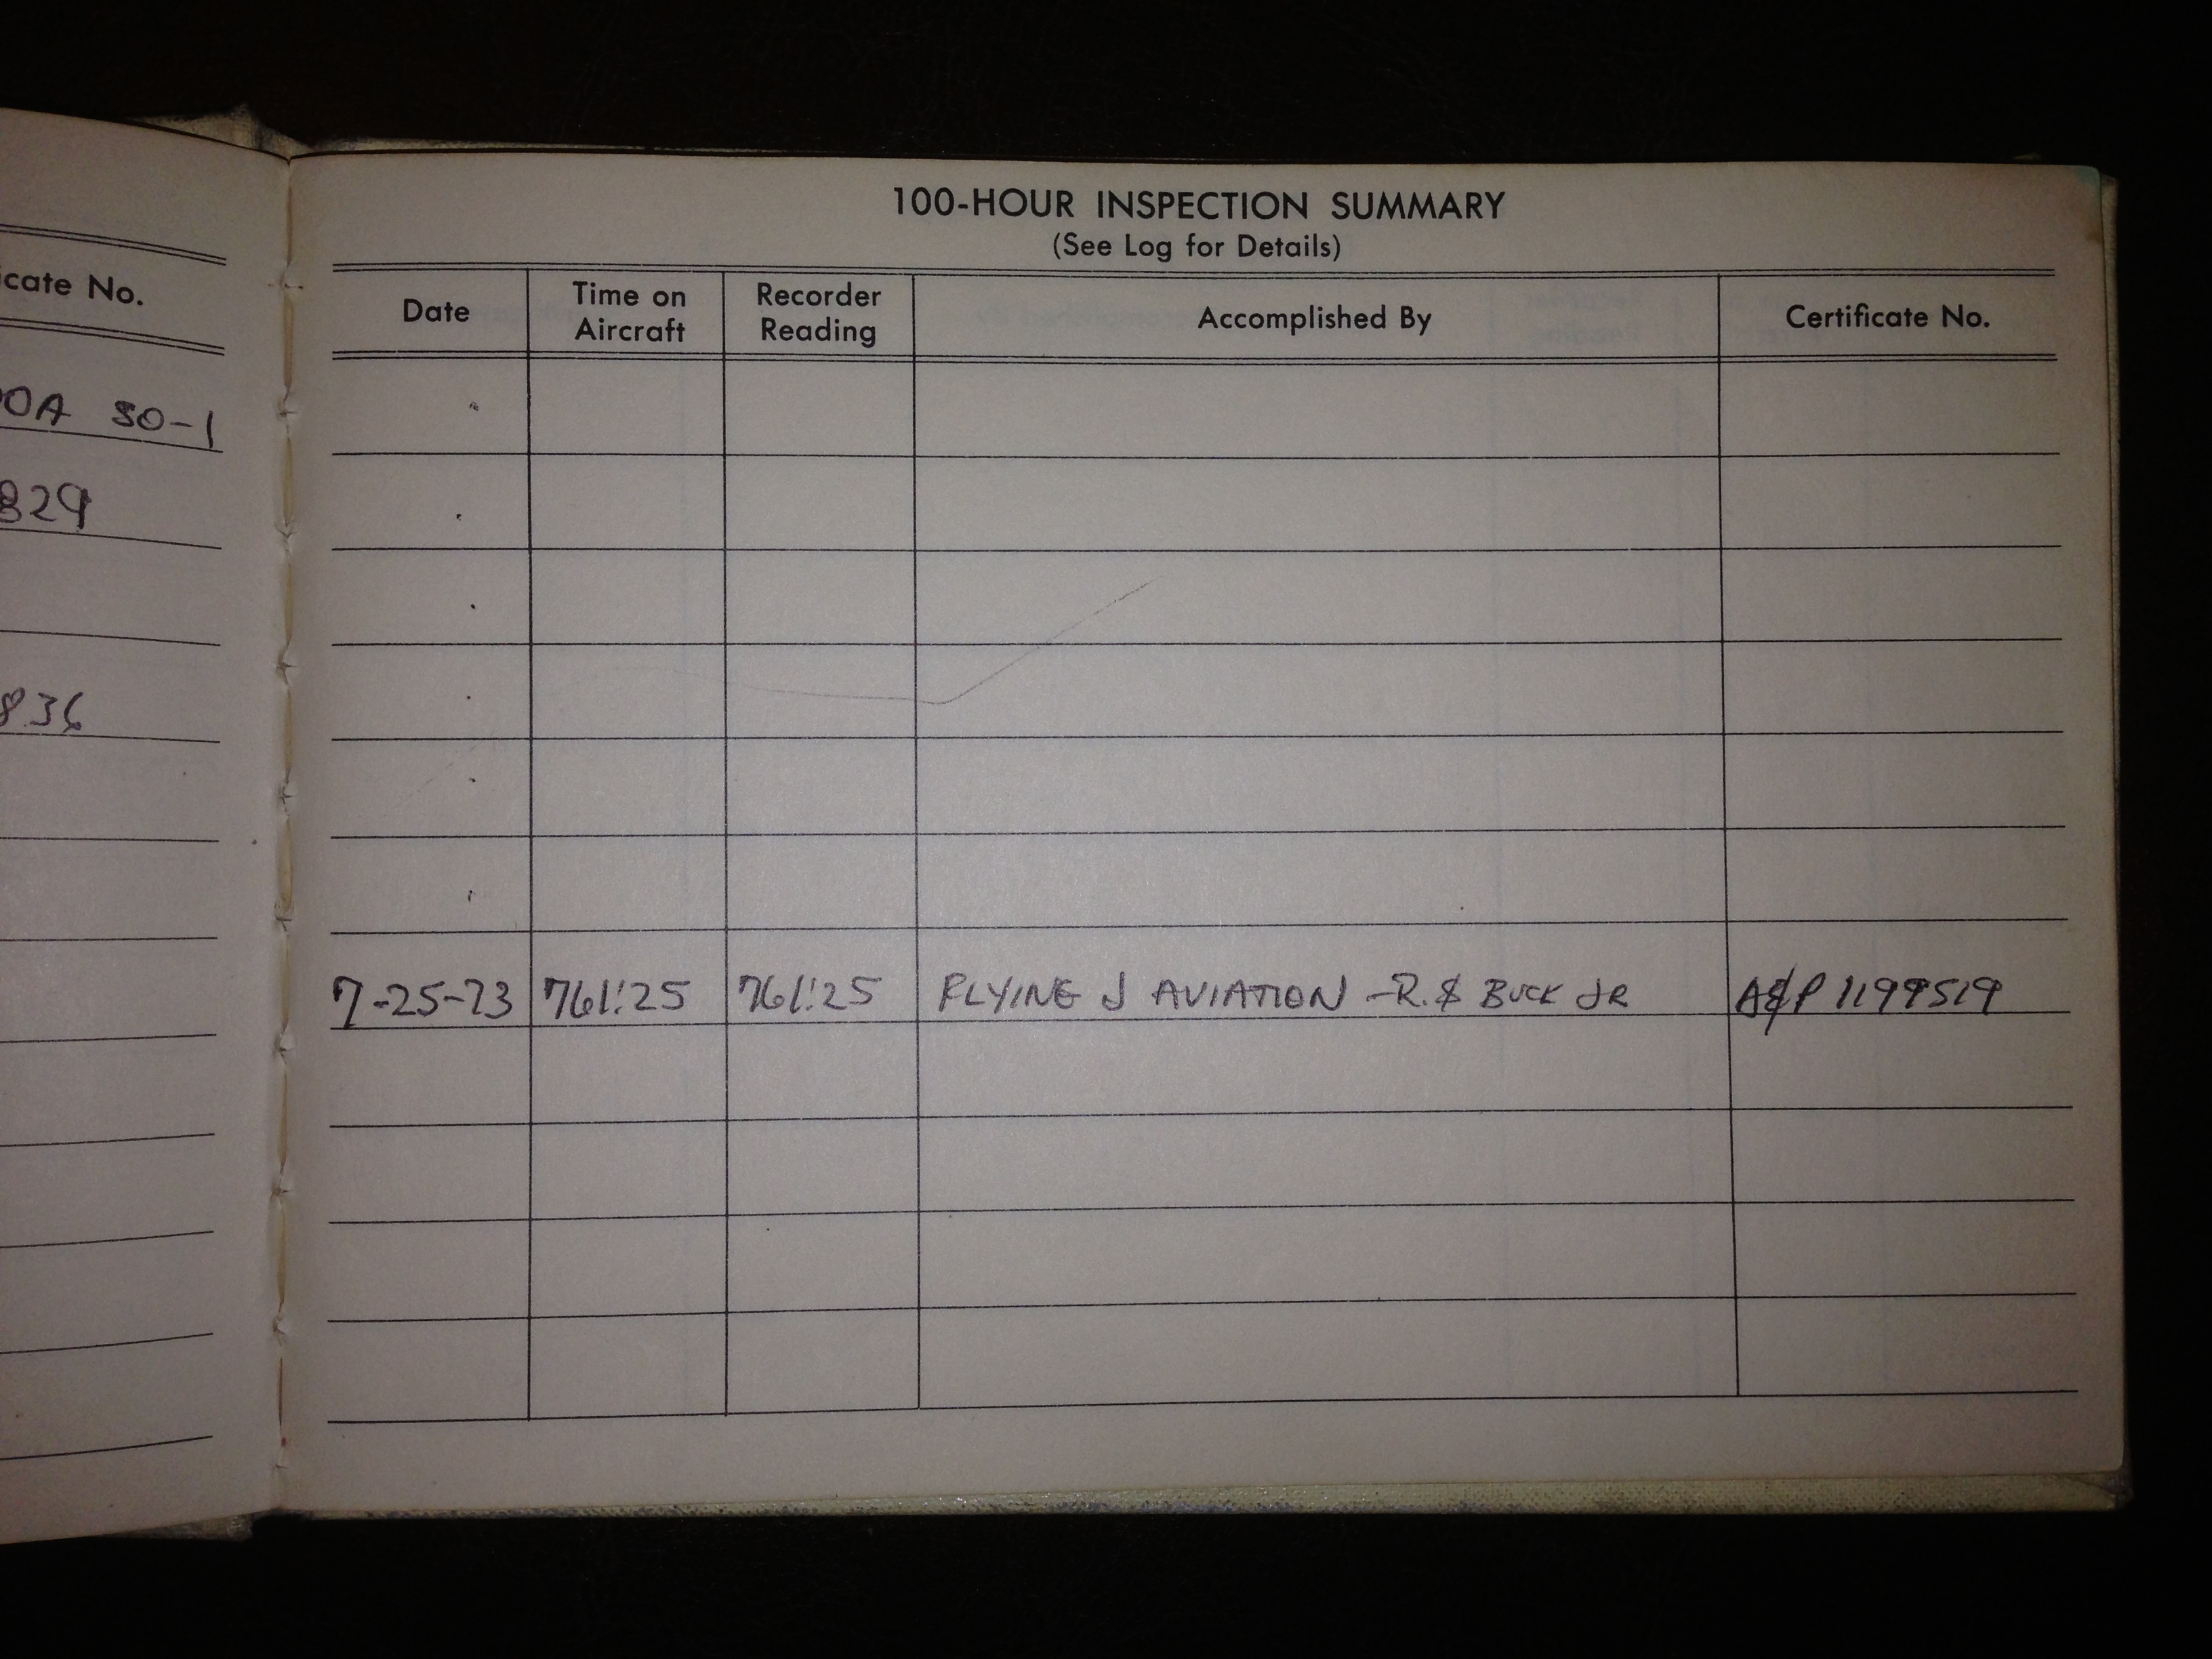 icate No.
0A 30-1
829
836
100-HOUR INSPECTION SUMMARY
(See Log for Details)
Date Time on Aircraft Recorder Reading Accomplished By Certificate No.
7-25-73 761:25 761:25 FLYING J AVIATION - R. BUCK JR A&P 1199519